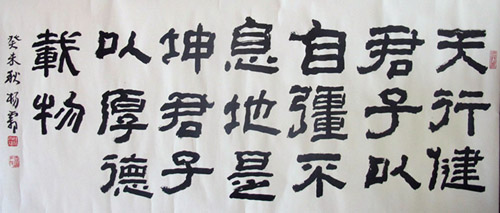 天行健
君子以
自彊不
息地是
坤君子
以厚德
載物
癸未秋杨